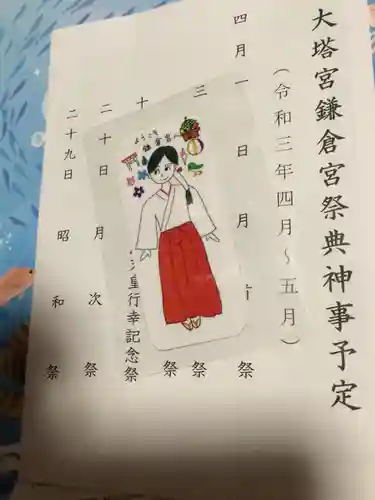 大塔宮鎌倉宮祭典神事予定
(令和三年四月～五月)
四月一日月 祭
三 祭
十 祭
皇行幸記念祭
二十日 月次祭
二十九日 昭和祭
ようこそ
鎌倉宮へ